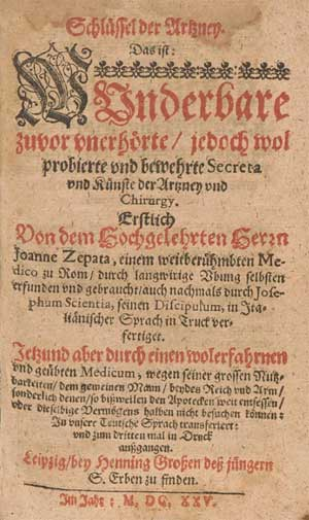 Schlüssel der Artzney.
Das ist:
WUnderbare
zuvor vnerhörte/ jedoch wol
probierte vnd bewehrte Secreta
vnd Künste der Artzney vnd
Chirurgy.
Erstlich
Von dem Hochgelehrten Herrn
Joanne Zepata, einem weitberühmbten Me-
dico zu Rom/ durch langwirige Vbung selbsten
erfunden vnd gebraucht/ auch nachmals durch Jose-
phum Scientia, seinen Discipulum, in Ita-
liänischer Sprach in Truck ver-
fertiget.
Jetzund aber durch einen wolerfahrnen
vnd geübten Medicum, wegen seiner grossen Nutz-
barkeiten/ dem gemeinen Mann/ beydes Reich vnd Arm/
sonderlich denen/ so bißweilen den Apotecken weit entsessen/
oder dieselbige Vermögens halben nicht besuchen können:
In vnsere Teutsche Sprach transferiert:
vnd zum dritten mal in Druck
außgangen.
Leipzig/ bey Henning Großen deß jüngern
S. Erben zu finden.
Im Jahr: M, DC, XXV.